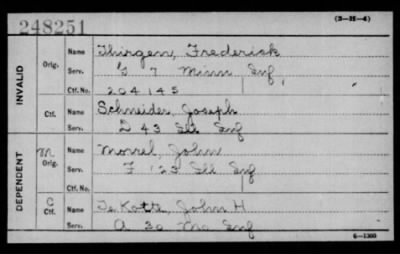 248251
(3-H-4)
INVALID
Orig. Name Thirgen, Frederick
Serv. G 7 Minn Inf
Ctf. No. 204145
Ctf. Name Schneider, Joseph
Serv. D 43 Ill Inf
DEPENDENT
M Orig. Name Morrel, John
Serv. F 123 Ill Inf
Ctf. No.
C Ctf. Name Te Kotte, John H
Serv. A 30 Mo Inf
6-1360